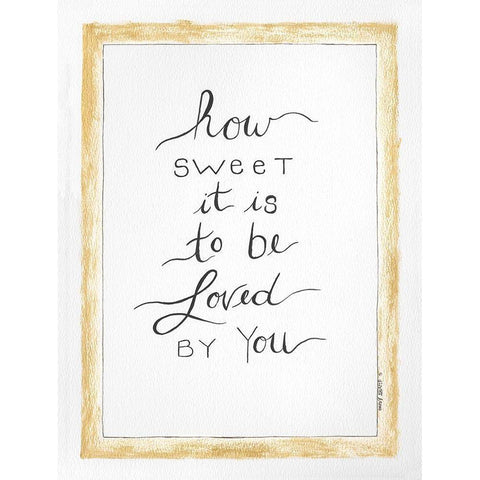 how
SWEET
it is
to be
Loved
BY YOU